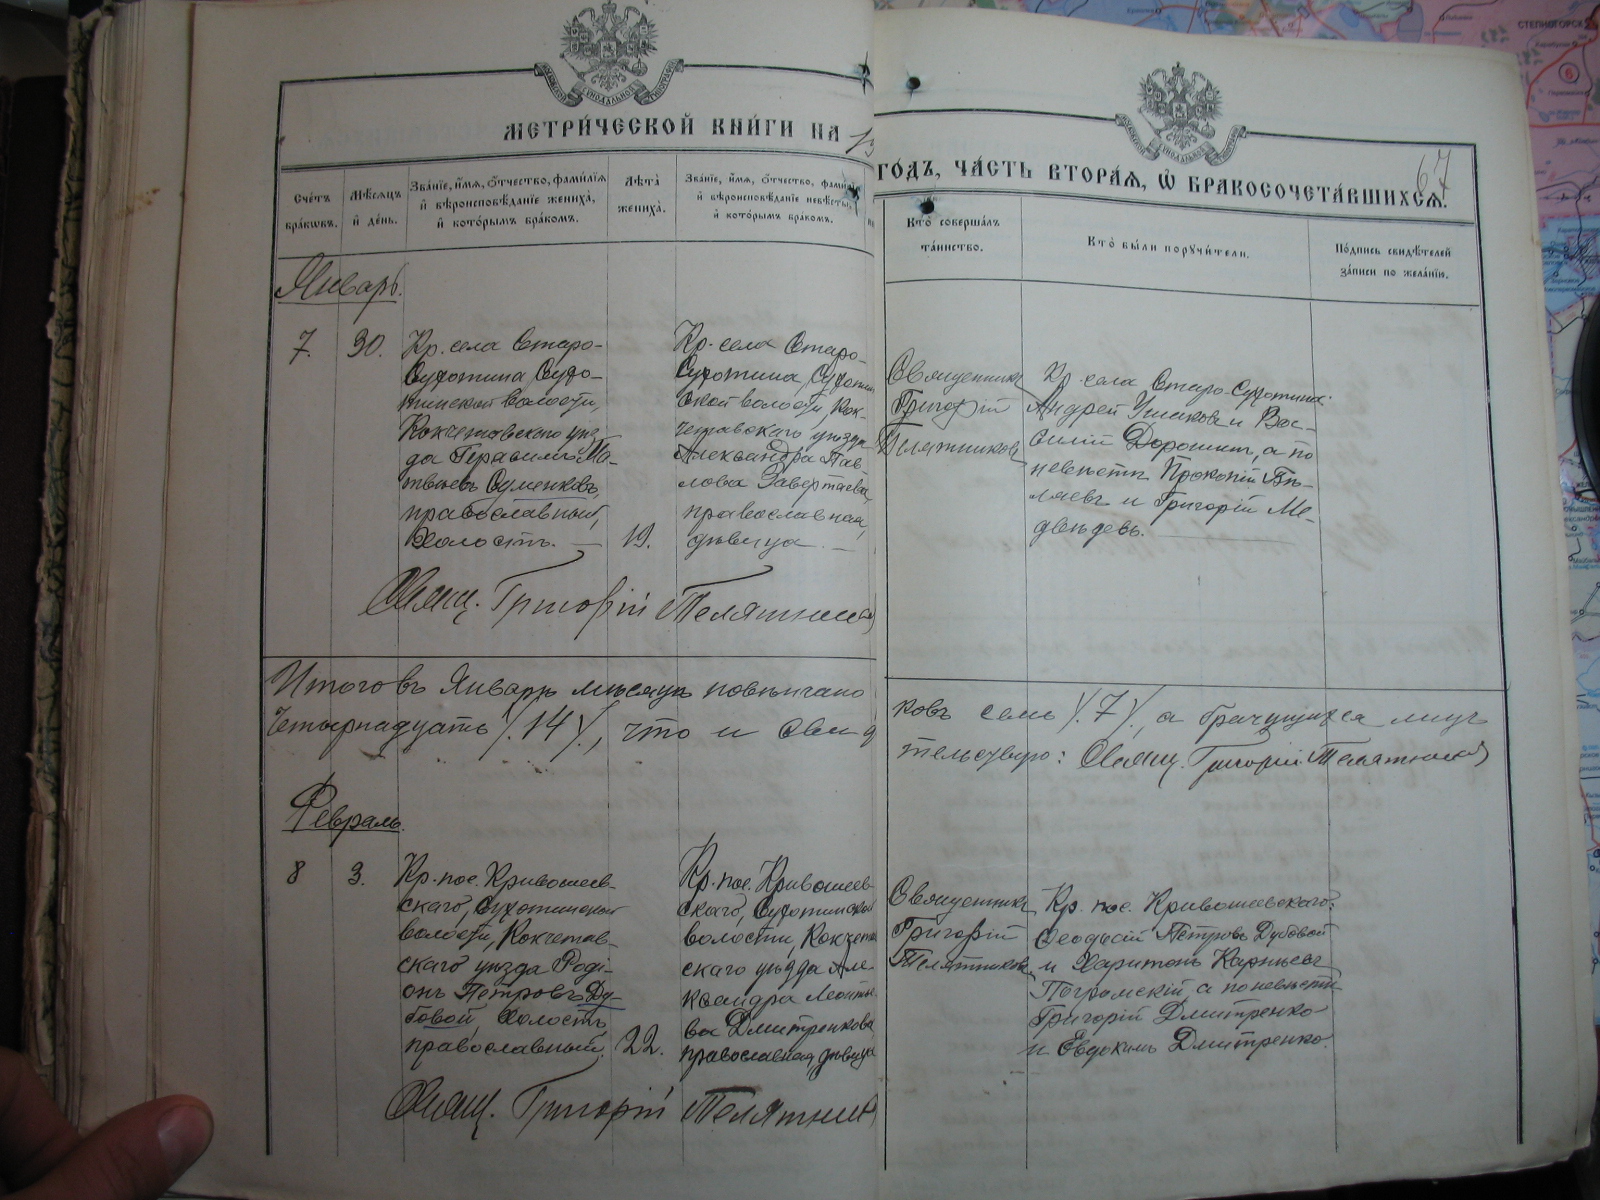 МЕТРИ́ЧЕСКОЙ КНИ́ГИ НА
ГО́ДЪ, ЧА́СТЬ ВТОРА́Я, Ѡ҆ БРАКОСОЧЕТА́ВШИХСѦ.
67
Сче́тъ бра́кѡвъ.
Мѣ́сяцъ и҆ де́нь.
Зва́нїе, и҆́мя, о҆́тчество, фами́лїя
и҆ вѣроисповѣ́данїе жениха̀,
и҆ кото́рымъ бра́комъ.
Лѣ́та жениха̀.
Зва́нїе, и҆́мя, о҆́тчество,
и҆ вѣроисповѣ́данїе невѣ́сты,
и҆ кото́рымъ бра́комъ.
Кто̀ соверша́лъ
та́инство.
Кто̀ бы́ли порꙋчи́тели.
По́дпись свидѣ́телей
за́писи по жела́нїю.
Январь.
7. 30.
Кр. села Старо-
Сухотина, Сухо-
тинской волости,
Кокчетавскаго уѣз-
да Герасимъ Ма-
твѣевъ Суменковъ,
православный,
холостъ. —
19.
Кр. села Старо-
Сухотина, Сухотин
ской волости, Кок-
четавскаго уѣзда
Александра Пав-
лова Завертаева
православная,
дѣвица. —
Священникъ
Григорій
Телятниковъ
Кр. села Старо-Сухотина:
Андрей Ушаковъ и Ва-
силій Дорошинъ, а по
невѣстѣ Прокопій Бѣ-
ляевъ и Григорій Ме-
двѣдевъ.
Свящ. Григорій Телятников
Итого въ Январѣ мѣсяцѣ повѣнчано
ковъ семь /.7/., а брачущихся лицъ
Четырнадцать /.14/., что и свид
тельствую: Свящ. Григорій Телятников
Февраль.
8 3.
Кр. пос. Кривошеев-
скаго, Сухотинской
волости, Кокчетав-
скаго уѣзда Роді-
онъ Петровъ Ду-
бовой, холостъ,
православный,
22.
Кр. пос. Кривошеев-
скаго, Сухотинской
волости, Кокчетав
скаго уѣзда Але-
ксандра Леонтье
ва Дмитренкова,
православная, дѣвица
Священникъ
Григорій
Телятниковъ
Кр. пос. Кривошеевскаго:
Ѳеодосій Петровъ Дубовой
и Харитонъ Карнѣевъ
Погромскій, а по невѣстѣ
Григорій Дмитренко
и Евдокимъ Дмитренко.
Свящ. Григорій Телятник